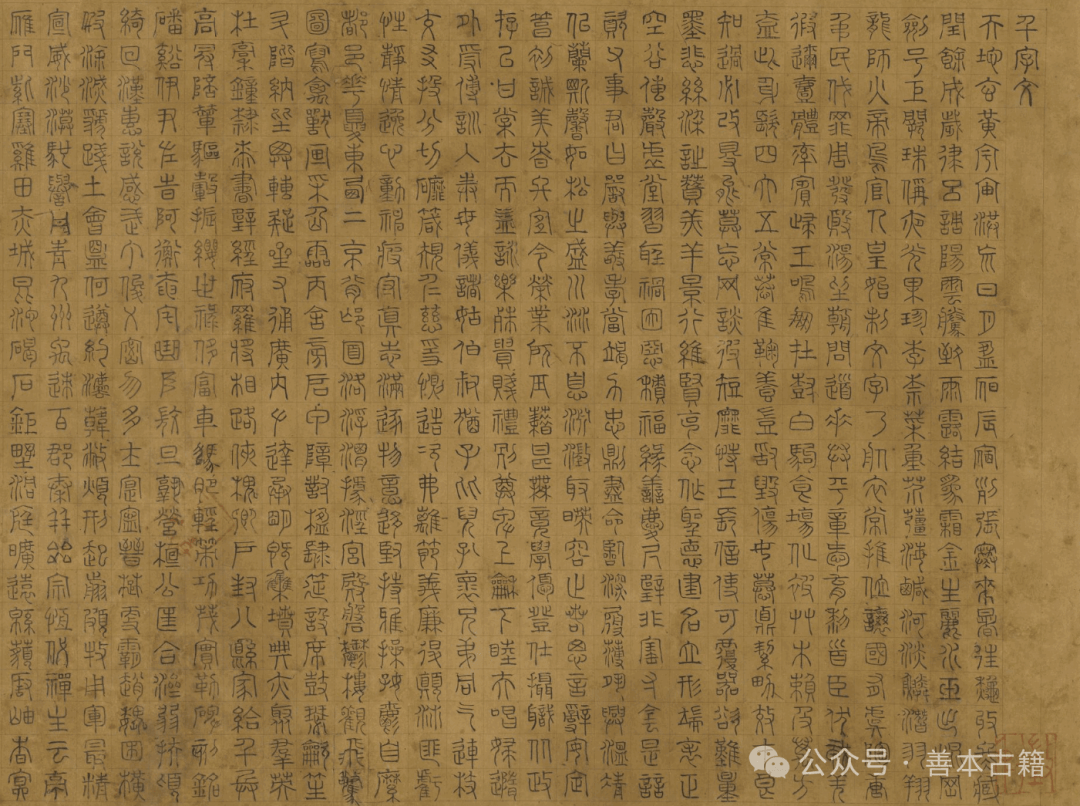 千字文
天地玄黃宇宙洪荒日月盈昃辰宿列張寒來暑往秋收冬藏
閏餘成歲律呂調陽雲騰致雨露結為霜金生麗水玉出崑岡
劍號巨闕珠稱夜光果珍李柰菜重芥薑海鹹河淡鱗潛羽翔
龍師火帝鳥官人皇始制文字乃服衣裳推位讓國有虞陶唐
弔民伐罪周發殷湯坐朝問道垂拱平章愛育黎首臣伏戎羌
遐邇壹體率賓歸王鳴鳳在樹白駒食場化被草木賴及萬方
蓋此身髮四大五常恭惟鞠養豈敢毀傷女慕貞絜男效才良
知過必改得能莫忘罔談彼短靡恃己長信使可覆器欲難量
墨悲絲染詩讚羔羊景行維賢克念作聖德建名立形端表正
空谷傳聲虛堂習聽禍因惡積福緣善慶尺璧非寶寸陰是競
資父事君曰嚴與敬孝當竭力忠則盡命臨深履薄夙興溫凊
似蘭斯馨如松之盛川流不息淵澄取映容止若思言辭安定
篤初誠美慎終宜令榮業所基籍甚無竟學優登仕攝職從政
存以甘棠去而益詠樂殊貴賤禮別尊卑上和下睦夫唱婦隨
外受傅訓入奉母儀諸姑伯叔猶子比兒孔懷兄弟同氣連枝
交友投分切磨箴規仁慈隱惻造次弗離節義廉退顛沛匪虧
性靜情逸心動神疲守真志滿逐物意移堅持雅操好爵自縻
都邑華夏東西二京背邙面洛浮渭據涇宮殿盤鬱樓觀飛驚
圖寫禽獸畫采仙靈丙舍傍啟甲帳對楹肆筵設席鼓瑟吹笙
升階納陛弁轉疑星右通廣內左達承明既集墳典亦聚群英
杜稿鍾隸漆書壁經府羅將相路俠槐卿戶封八縣家給千兵
高冠陪輦驅轂振纓世祿侈富車駕肥輕策功茂實勒碑刻銘
磻谿伊尹佐時阿衡奄宅曲阜微旦孰營桓公匡合濟弱扶傾
綺回漢惠說感武丁俊乂密勿多士寔寧晉楚更霸趙魏困橫
假途滅虢踐土會盟何遵約法韓弊煩刑起翦頗牧用軍最精
宣威沙漠馳譽丹青九州禹跡百郡秦并岳宗恆岱禪主云亭
雁門紫塞雞田赤城昆池碣石鉅野洞庭曠遠緜邈巖岫杳冥
公众号·善本古籍